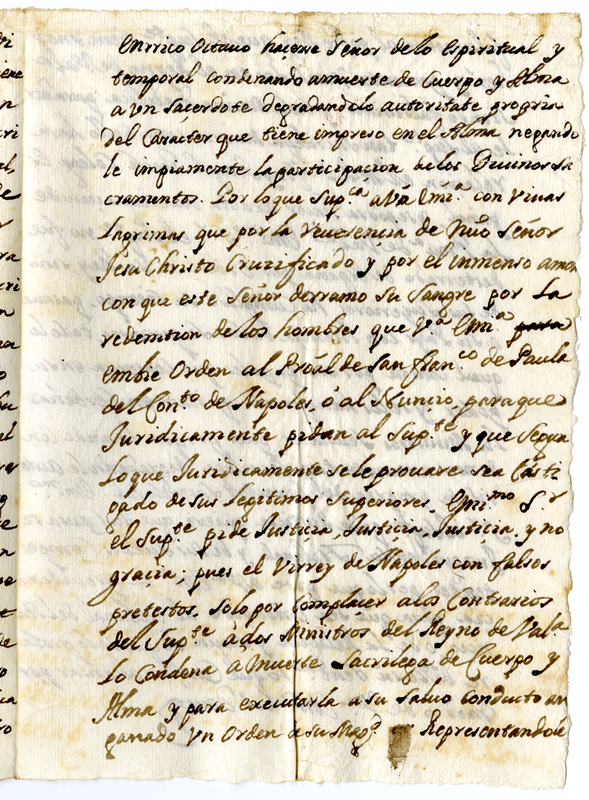 Enrrico Octauo haçerse Señor delo espiritual y
temporal condenando amuerte de Cuerpo y Alma
a un Sacerdote degradandolo autoritate propria
del Caracter que tiene impreso en el Alma negando
le impiamente la participacion delos Diuinos sa
cramentos. Por loque Sup.ca a Va Emi.a con viuas
lagrimas que por la reuerencia de Nuo Señor
Jesu Christo Cruzificado y por el inmenso amor
con que este Señor derramo su Sangre por La
redemtion de los hombres que V.a Emi.a para
embie Orden al Proal de San Fran.co de Paula
del Con.to de Napoles, ó al Nuncio, paraque
Juridicamente pidan al Sup.te y que segun
Loque Juridicamente sele prouare sea Casti
gado de sus legitimos superiores. Emi.mo S.r
el Sup.te pide Justicia, Justicia, Justicia, y no
gracia; pues el Virrey de Napoles con falsos
pretestos, solo por Complacer a los Contrarios
del Sup.te á dos Ministros del Reyno de Val.a
Lo Condena á Muerte Sacrilega de Cuerpo y
Alma y para executarla a su saluo conducto an
ganado un Orden de su Mag.d Representandole